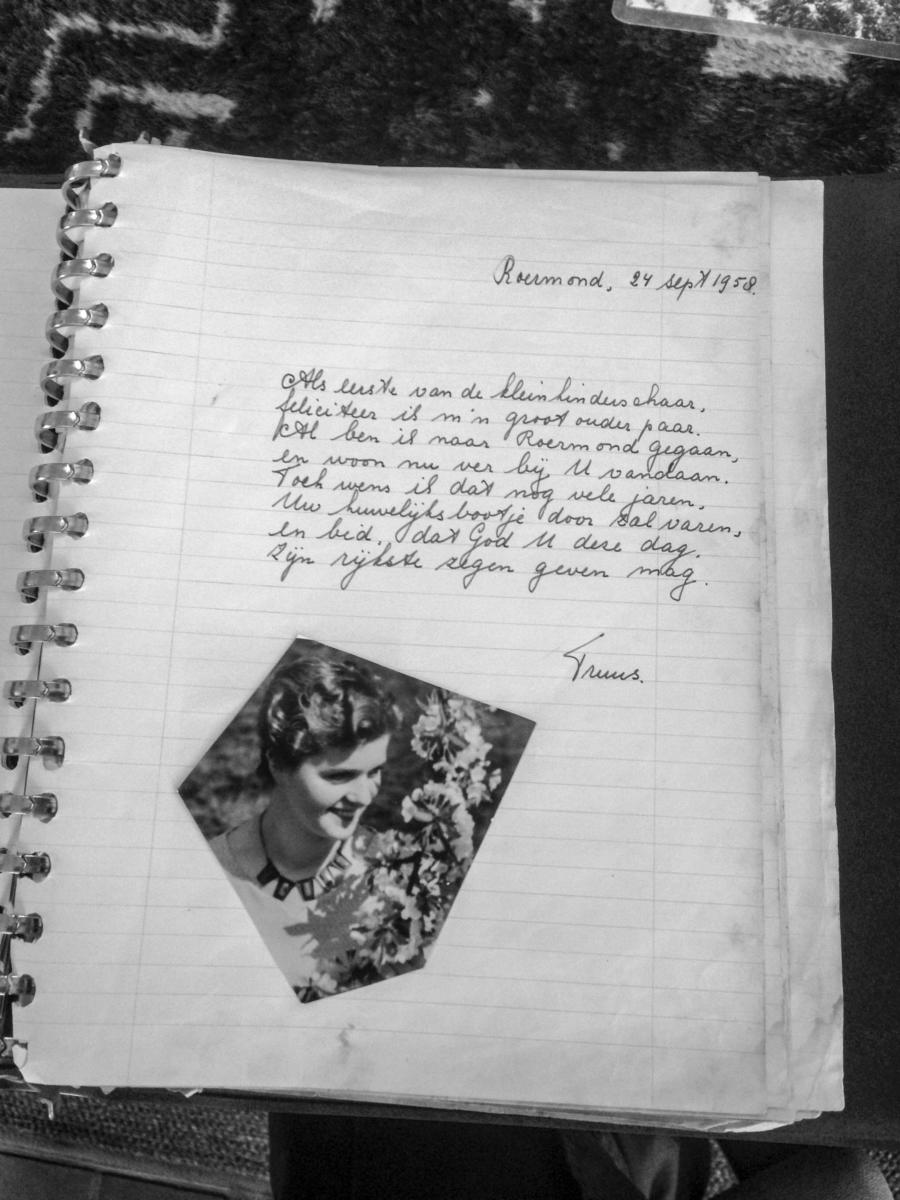 Roermond, 24 sept 1958.
Als eerste van de kleinkinderschaar,
feliciteer ik m'n groot ouder paar.
Al ben ik naar Roermond gegaan,
en woon nu ver bij U vandaan.
Toch wens ik dat nog vele jaren,
Uw huwelijksbootje door zal varen,
en bid, dat God U deze dag,
Zijn rijkste zegen geven mag.
Truus.